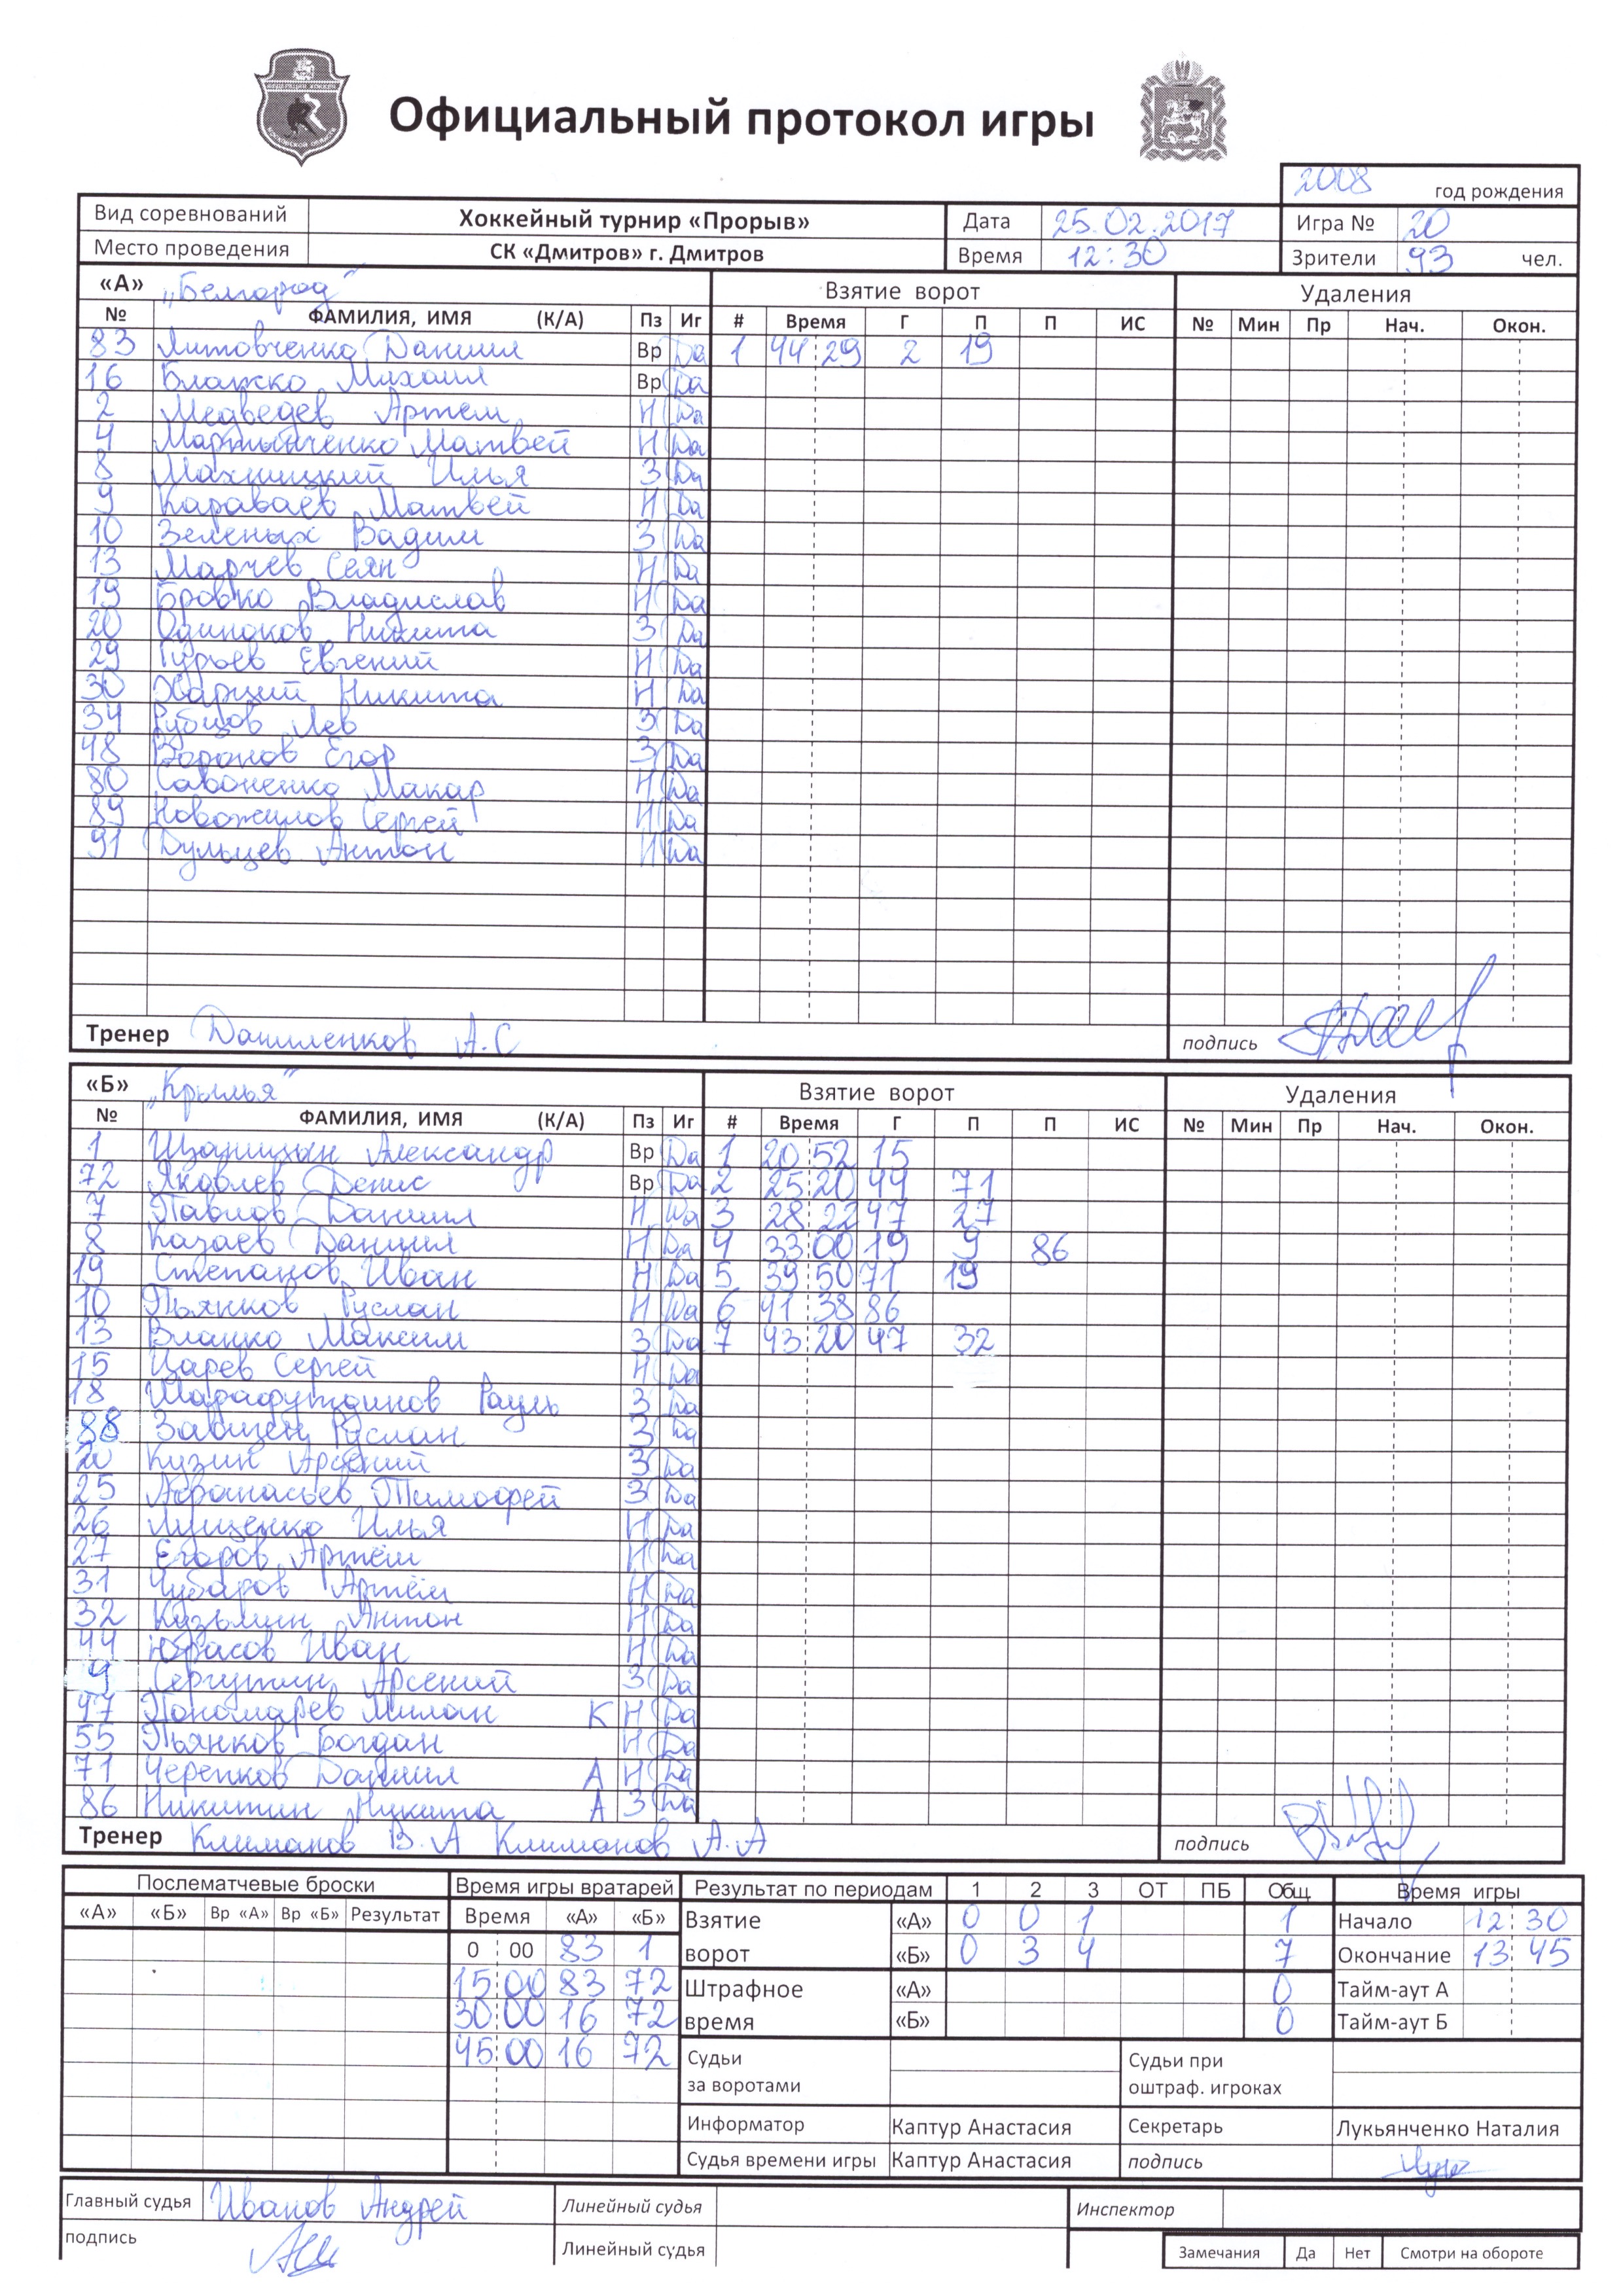 Официальный протокол игры
2008 год рождения
Вид соревнований Хоккейный турнир «Прорыв» Дата 25.02.2017 Игра № 20
Место проведения СК «Дмитров» г. Дмитров Время 12:30 Зрители 93 чел.
«А» „Белгород“ Взятие ворот Удаления
№ ФАМИЛИЯ, ИМЯ (К/А) Пз Иг # Время Г П П ИС № Мин Пр Нач. Окон.
83 Литовченко Даниил Вр Да 1 44 29 2 19
16 Блажко Михаил Вр Да
2 Медведев Артем Н Да
4 Мартынченко Матвей Н Да
8 Махницкий Илья З Да
9 Караваев Матвей Н Да
10 Зеленых Вадим З Да
13 Марчев Сеян Н Да
19 Бровко Владислав Н Да
20 Одиноков Никита З Да
29 Гурьев Евгений Н Да
30 Харций Никита Н Да
34 Рубцов Лев З Да
48 Воронов Егор З Да
80 Савоненко Макар Н Да
89 Новожилов Сергей Н Да
91 Дульцев Антон Н Да
Тренер Даниленков А.С подпись
«Б» „Крылья“ Взятие ворот Удаления
№ ФАМИЛИЯ, ИМЯ (К/А) Пз Иг # Время Г П П ИС № Мин Пр Нач. Окон.
1 Александр Вр Да 1 20 52 15
72 Яковлев Денис Вр Да 2 25 20 44 71
7 Павлов Даниил Н Да 3 28 22 47 27
8 Казаев Даниил Н Да 4 33 00 19 9 86
19 Степанов Иван Н Да 5 39 50 71 19
10 Пьянков Руслан Н Да 6 41 38 86
13 Влапко Максим З Да 7 43 20 47 32
15 Царев Сергей Н Да
18 Шарафутдинов Рауль З Да
88 Завицен Руслан З Да
20 Кузин Арсений З Да
25 Афанасьев Тимофей З Да
26 Лущенко Илья Н Да
27 Егоров Артём Н Да
31 Чубаров Артём Н Да
32 Кузьмин Антон Н Да
44 Юрасов Иван Н Да
9 Сергутин Арсений З Да
47 Пономарев Милан К Н Да
55 Пьянков Богдан Н Да
71 Черепков Даниил А Н Да
86 Никитин Никита А З Да
Тренер Климанов В.А Климанов А.А подпись
Послематчевые броски Время игры вратарей Результат по периодам 1 2 3 ОТ ПБ Общ. Время игры
«А» «Б» Вр «А» Вр «Б» Результат Время «А» «Б» Взятие «А» 0 0 1 1 Начало 12 30
0 00 83 1 ворот «Б» 0 3 4 7 Окончание 13 45
15 00 83 72 Штрафное «А» 0 Тайм-аут А
30 00 16 72 время «Б» 0 Тайм-аут Б
45 00 16 72 Судьи Судьи при
за воротами оштраф. игроках
Информатор Каптур Анастасия Секретарь Лукьянченко Наталия
Судья времени игры Каптур Анастасия подпись
Главный судья Иванов Андрей Линейный судья Инспектор
подпись Линейный судья Замечания Да Нет Смотри на обороте